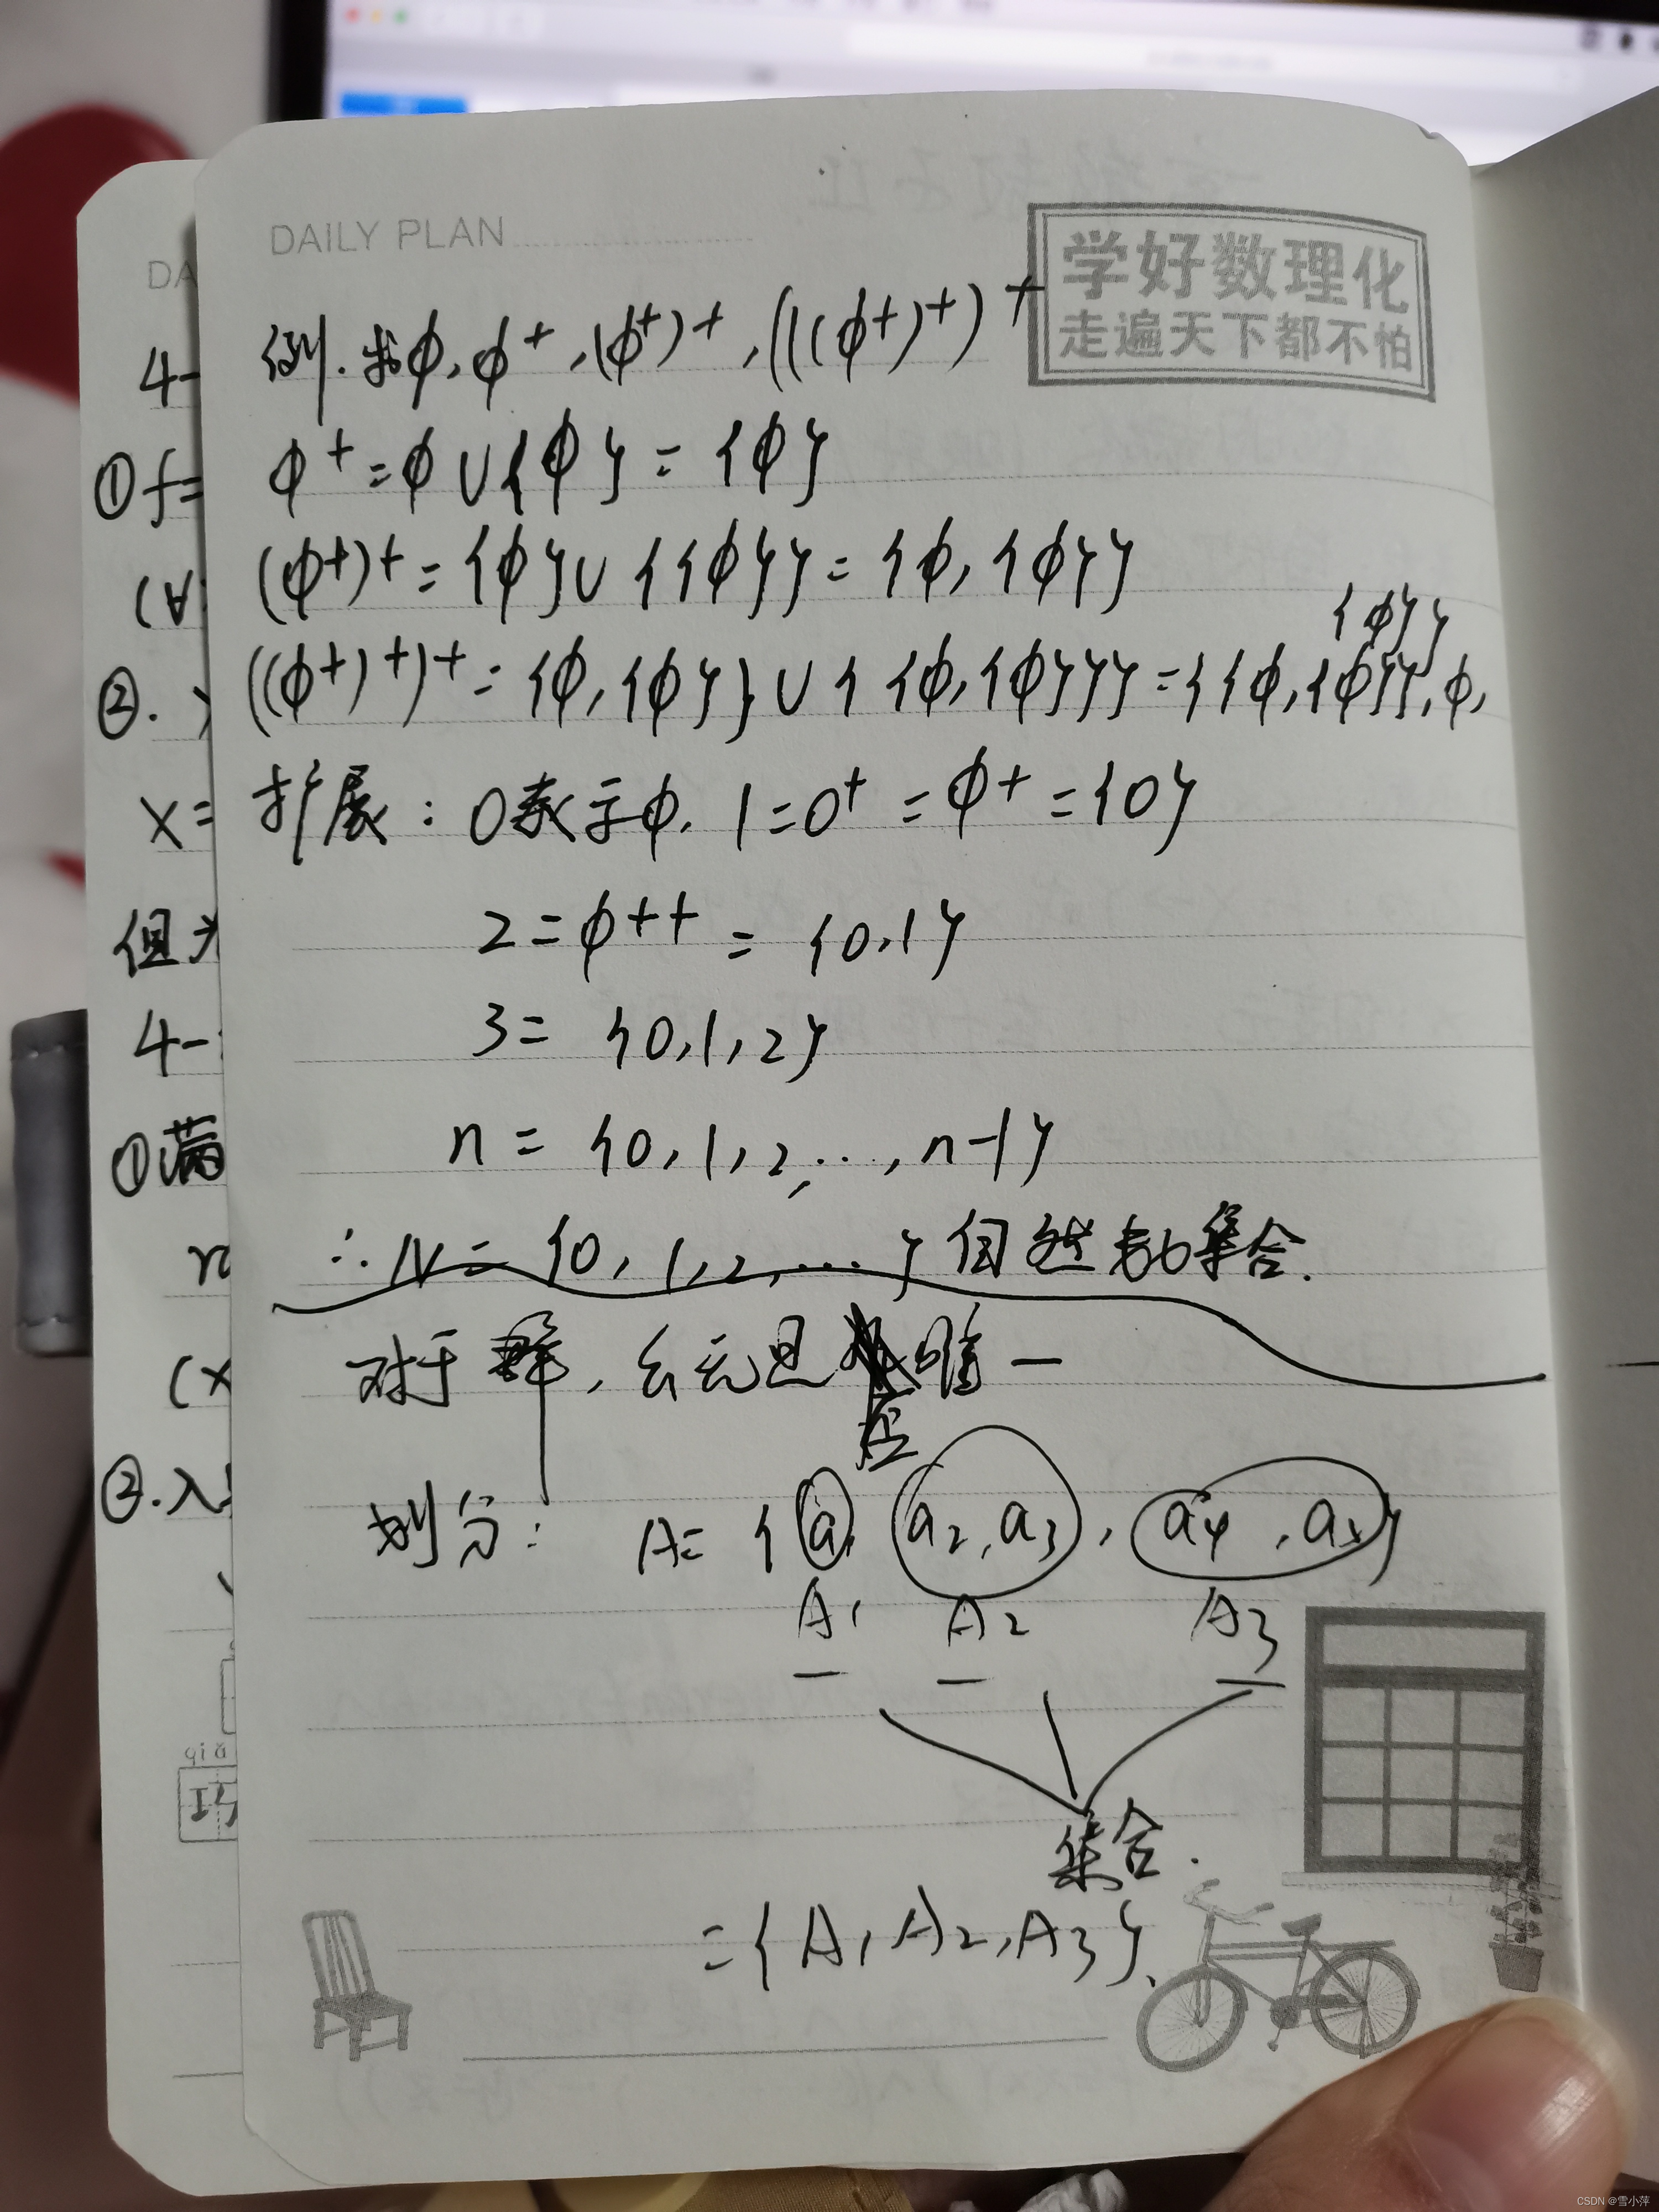 DAILY PLAN
学好数理化
走遍天下都不怕
例. 求ϕ, ϕ⁺, (ϕ⁺)⁺, (((ϕ⁺)⁺)⁺
ϕ⁺ = ϕ ∪ {ϕ} = {ϕ}
(ϕ⁺)⁺ = {ϕ} ∪ {{ϕ}} = {ϕ, {ϕ}}
((ϕ⁺)⁺)⁺ = {ϕ, {ϕ}} ∪ {{ϕ, {ϕ}}} = {{ϕ, {ϕ}}, ϕ, {ϕ}}
扩展: 0表示ϕ, 1=0⁺ = ϕ⁺ = {0}
2 = ϕ⁺⁺ = {0,1}
3 = {0,1,2}
n = {0,1,2,...,n-1}
∴ N = {0,1,2,...} 自然数集合.
对于群, 幺元且唯一
划分: A = {a, a2, a3, a4, a5}
A1 A2 A3
集合.
= {A1, A2, A3}.
DA
4-
① f=
(∀
②.
x=
但
4-
①满
(x
②.入
qiǎ
CSDN @雪小萍